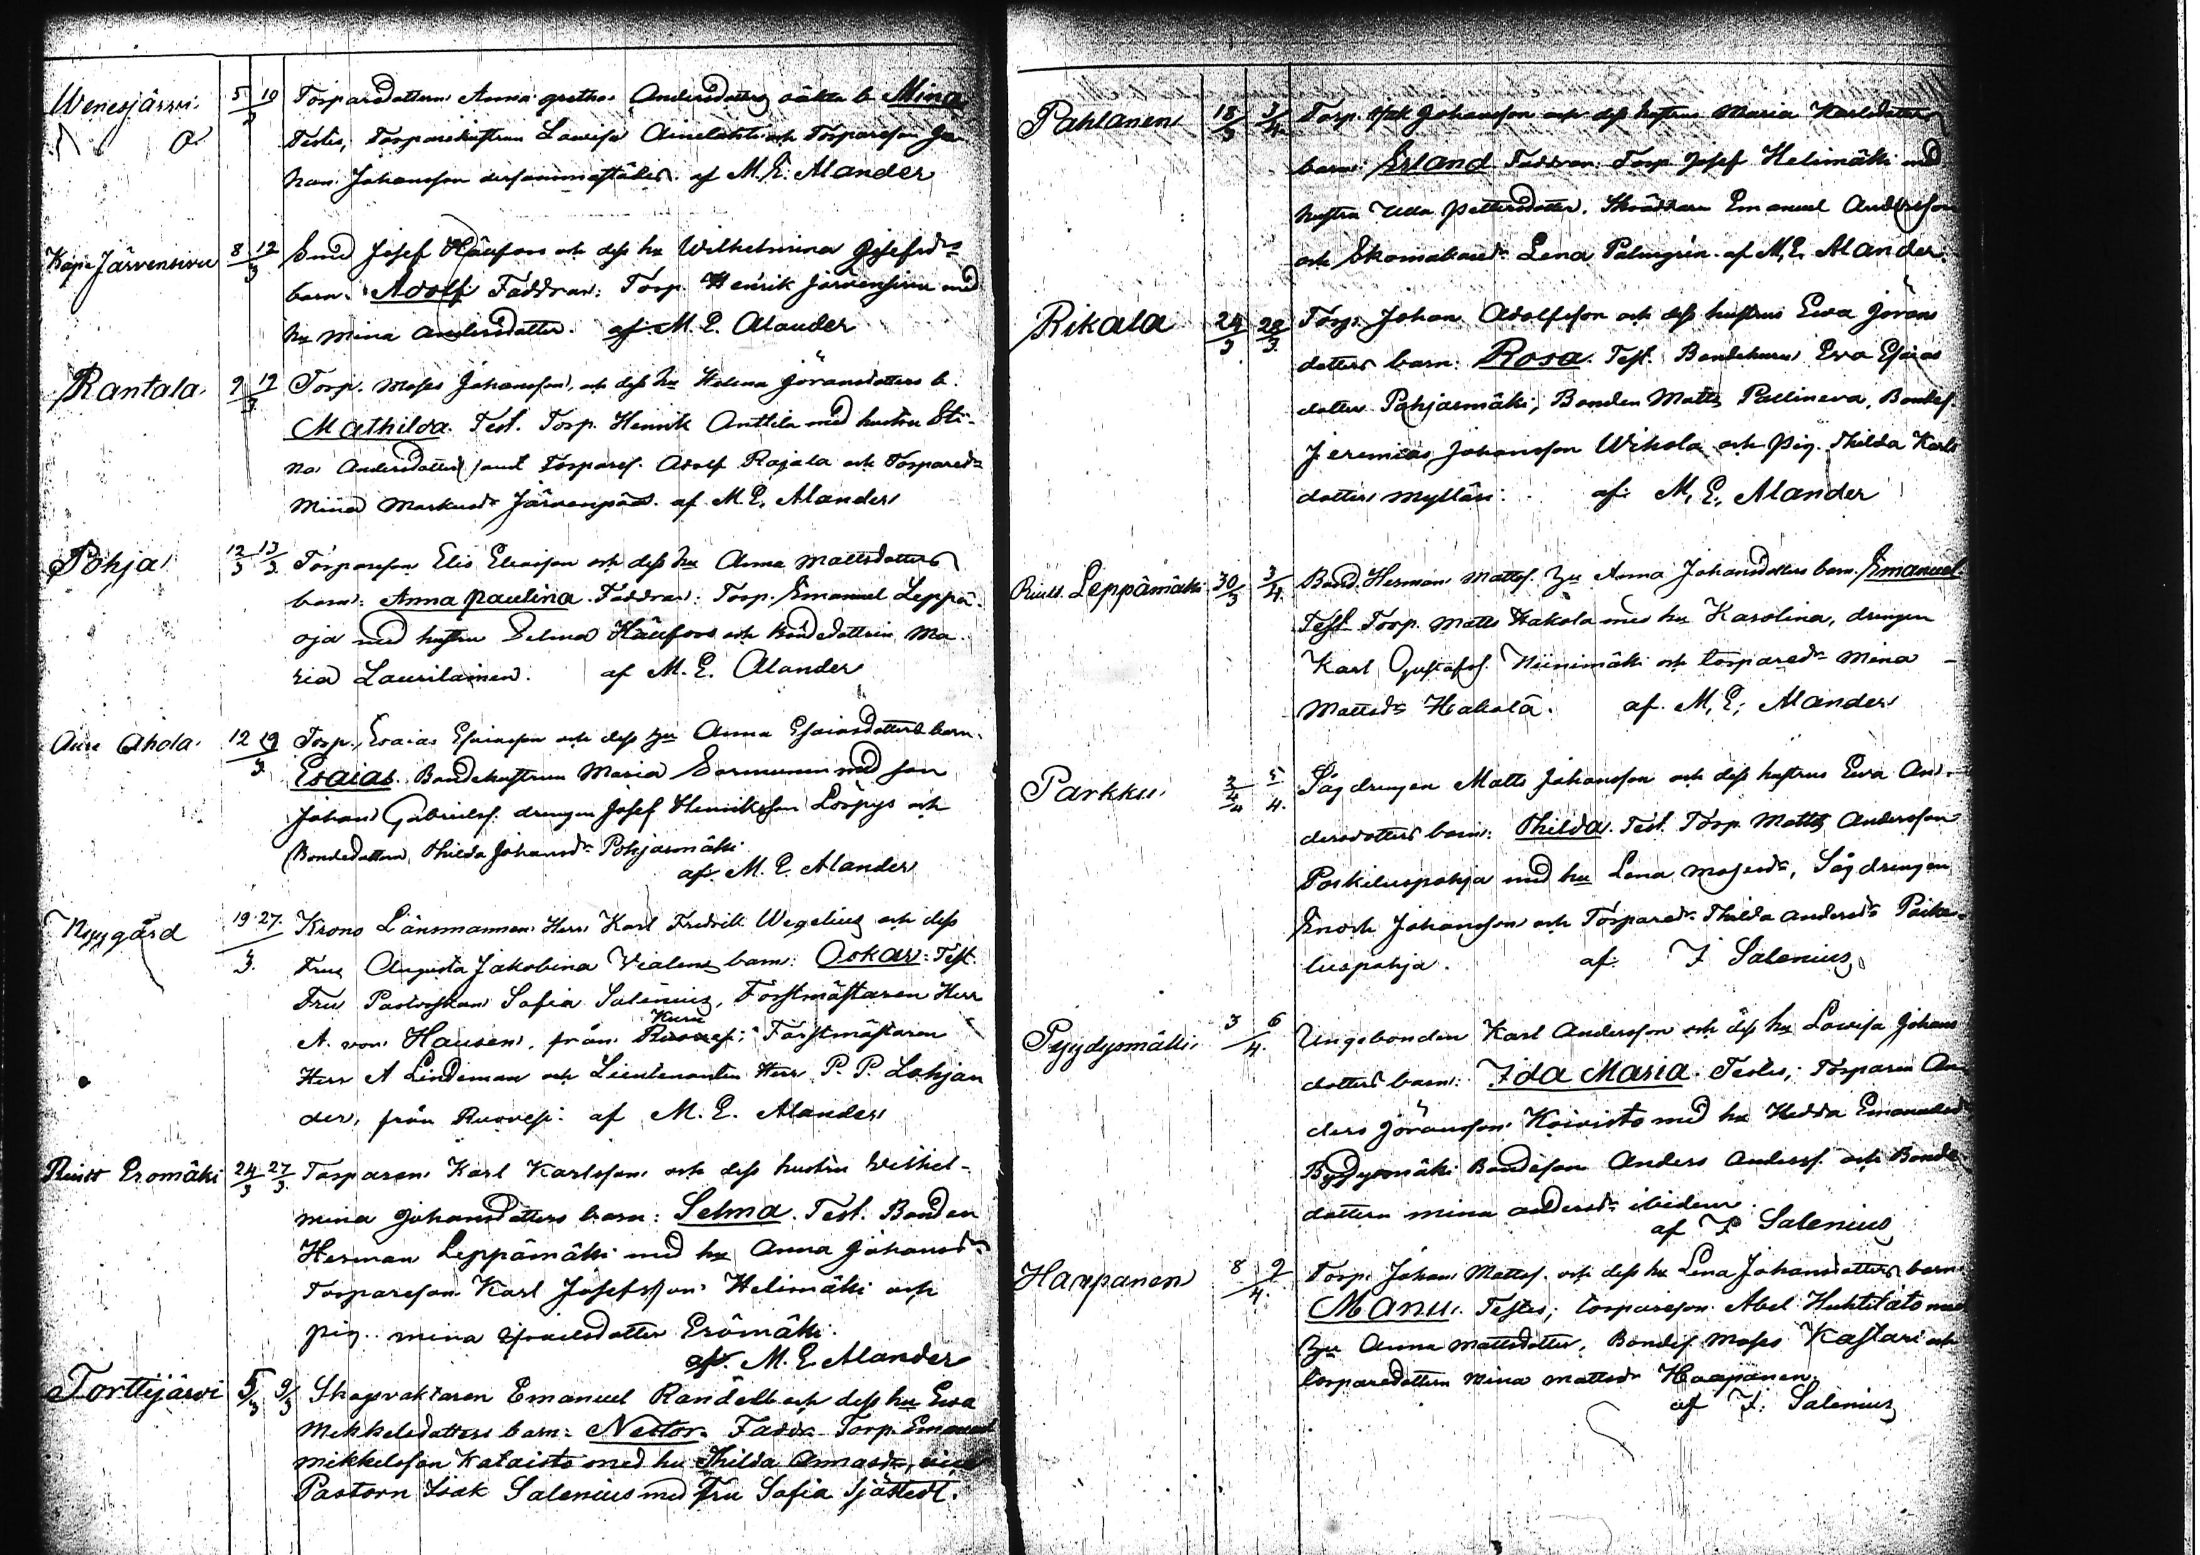 Wenesjärvi 5 10/3 Torparedottern Anna Gretha Andersdotters oäkta b. Mina
Testes, Torparehustrun Lowisa och Torpareson Jo-
han Johansson dersammastädes. af M. E. Alander
Järvensivu 8 12/3 Smed Josef Häufoos och dess hu Wilhelmina Josefsdr
barn. Adolf Faddrar: Torp. Henrik Järvensivu med
hu Mina Andersdotter. af M. E. Alander
Rantala 9 12/3 Torp. Moses Johansson, och dess hu Helena Göransdotters b.
Mathilda. Test. Torp. Henrik Anttila med hustru Sti-
na Andersdotter samt Torpares. Adolf Rajala och Torparedr
Mina Markusdr Järvenpää. af M. E. Alander
Pohja 12/3 13/3 Torpareson Elis Eliasson och dess hu Anna Mattsdotters
barn: Anna Paulina. Faddrar: Torp. Emanuel Leppä-
oja med hustru Selma Häufoos och Bondedottern Ma-
ria Laurilainen. af M. E. Alander
Ahola 12 19/3 Torp. Esaias Esaiasson och dess hu Anna Esaiasdotters barn.
Esaias. Bondehustrun Maria Sormunen med son
Johan Gabrielss. drengen Josef Henriksson Löspys och
Bondedottern Thilda Johansdr Pohjasmäki
af M. E. Alander
Nygård 19 27/3. Krono Länsmannen Herr Karl Fredrik Wegelius och dess
Fru Augusta Jakobina barn: Oskar. Test.
Fru Pastorskan Sofia Salenius, Forstmästaren Herr
Kuru
A. von Hausen, från Ruovesi; Forstmästaren
Herr A Lindeman och Lieutenanten Herr P. P. Lohjan
der, från Ruovesi. af M. E. Alander
Eromäki 24/3 27/3 Torparen Karl Karlsson och dess hustru Wilhel-
mina Johansdotters barn: Selma. Test. Bonden
Herman Leppämäki med hu Anna Johansdr
Torpareson Karl Josefsson Helimäki och
pig. Mina Israelsdotter Erömäki.
af M. E. Alander
Torttijärvi 5/3 9/3 Skogvaktaren Emanuel Randell och dess hu Ewa
Mikkelsdotters barn: Nestor. Faddr. Torp. Emanuel
Mikkelsson Kataisto med hu Thilda
Pastorn Isak Salenius med Fru Sofia Sjöstedt.
Pahlanen 18/3 3/4. Torp. Isak Johansson och dess hustrus Maria Karlsdotters
barn: Erland Faddrar: Torp Josef Helimäki med
hustru Ulla Pettersdotter, Skräddare Emanuel Andersson
och Skomakaredr Lena Palmgrén. af M. E. Alander.
Rikala 24/3 28/3. Torp. Johan Adolfsson och dess hustrus Ewa Görans
dotters barn: Rosa. Test. Bondehuru Eva Esaias
dotter Pohjasmäki, Bonden Matts Pallineva, Bondes.
Jeremias Johansson Wikola och Pig. Thilda Karls
dotter Mylläri. af M. E. Alander
Leppämäki 30/3 3/4 Bond. Herman Mattss. hu Anna Johansdotters barn. Emanuel.
Test Torp. Matts Hakola med hu Karolina, drengen
Karl Gustafss. Niinimäki och torparedr Mina
Mattsdr Hakola. af M. E. Alander
Parkku 3/4 5/4. Sågdrengen Matts Johansson och dess hustrus Ewa An-
dersdotters barn: Thilda. Test. Torp. Matts Andersson
Poikeluspohja med hu Lena Mosesdr, Sågdrengen
Enock Johansson och Torparedr Thilda Andersdr Poike-
luspohja. af I Salenius
Pyydysmäki 3 6/4. Ungsbonden Karl Andersson och dess hu Lowisa Johans
dotters barn: Ida Maria. Testes; Torparen An-
ders Göransson Koivisto med hu Hedda Emanuelsd
Bydysmäki Bondeson Anders Anderss. och Bonde
dottern Mina Andersdr ibidem.
af I Salenius
Haapanen 8 9/4. Torp. Johan Mattss. och dess hu Lena Johansdotters barn
Manu. Testes; torpareson Abel Huhtilato med
hu Anna Mattsdotter, Bondes. Moses Kastari och
torparedottern Mina Mattsdr Haapanen.
af I. Salenius